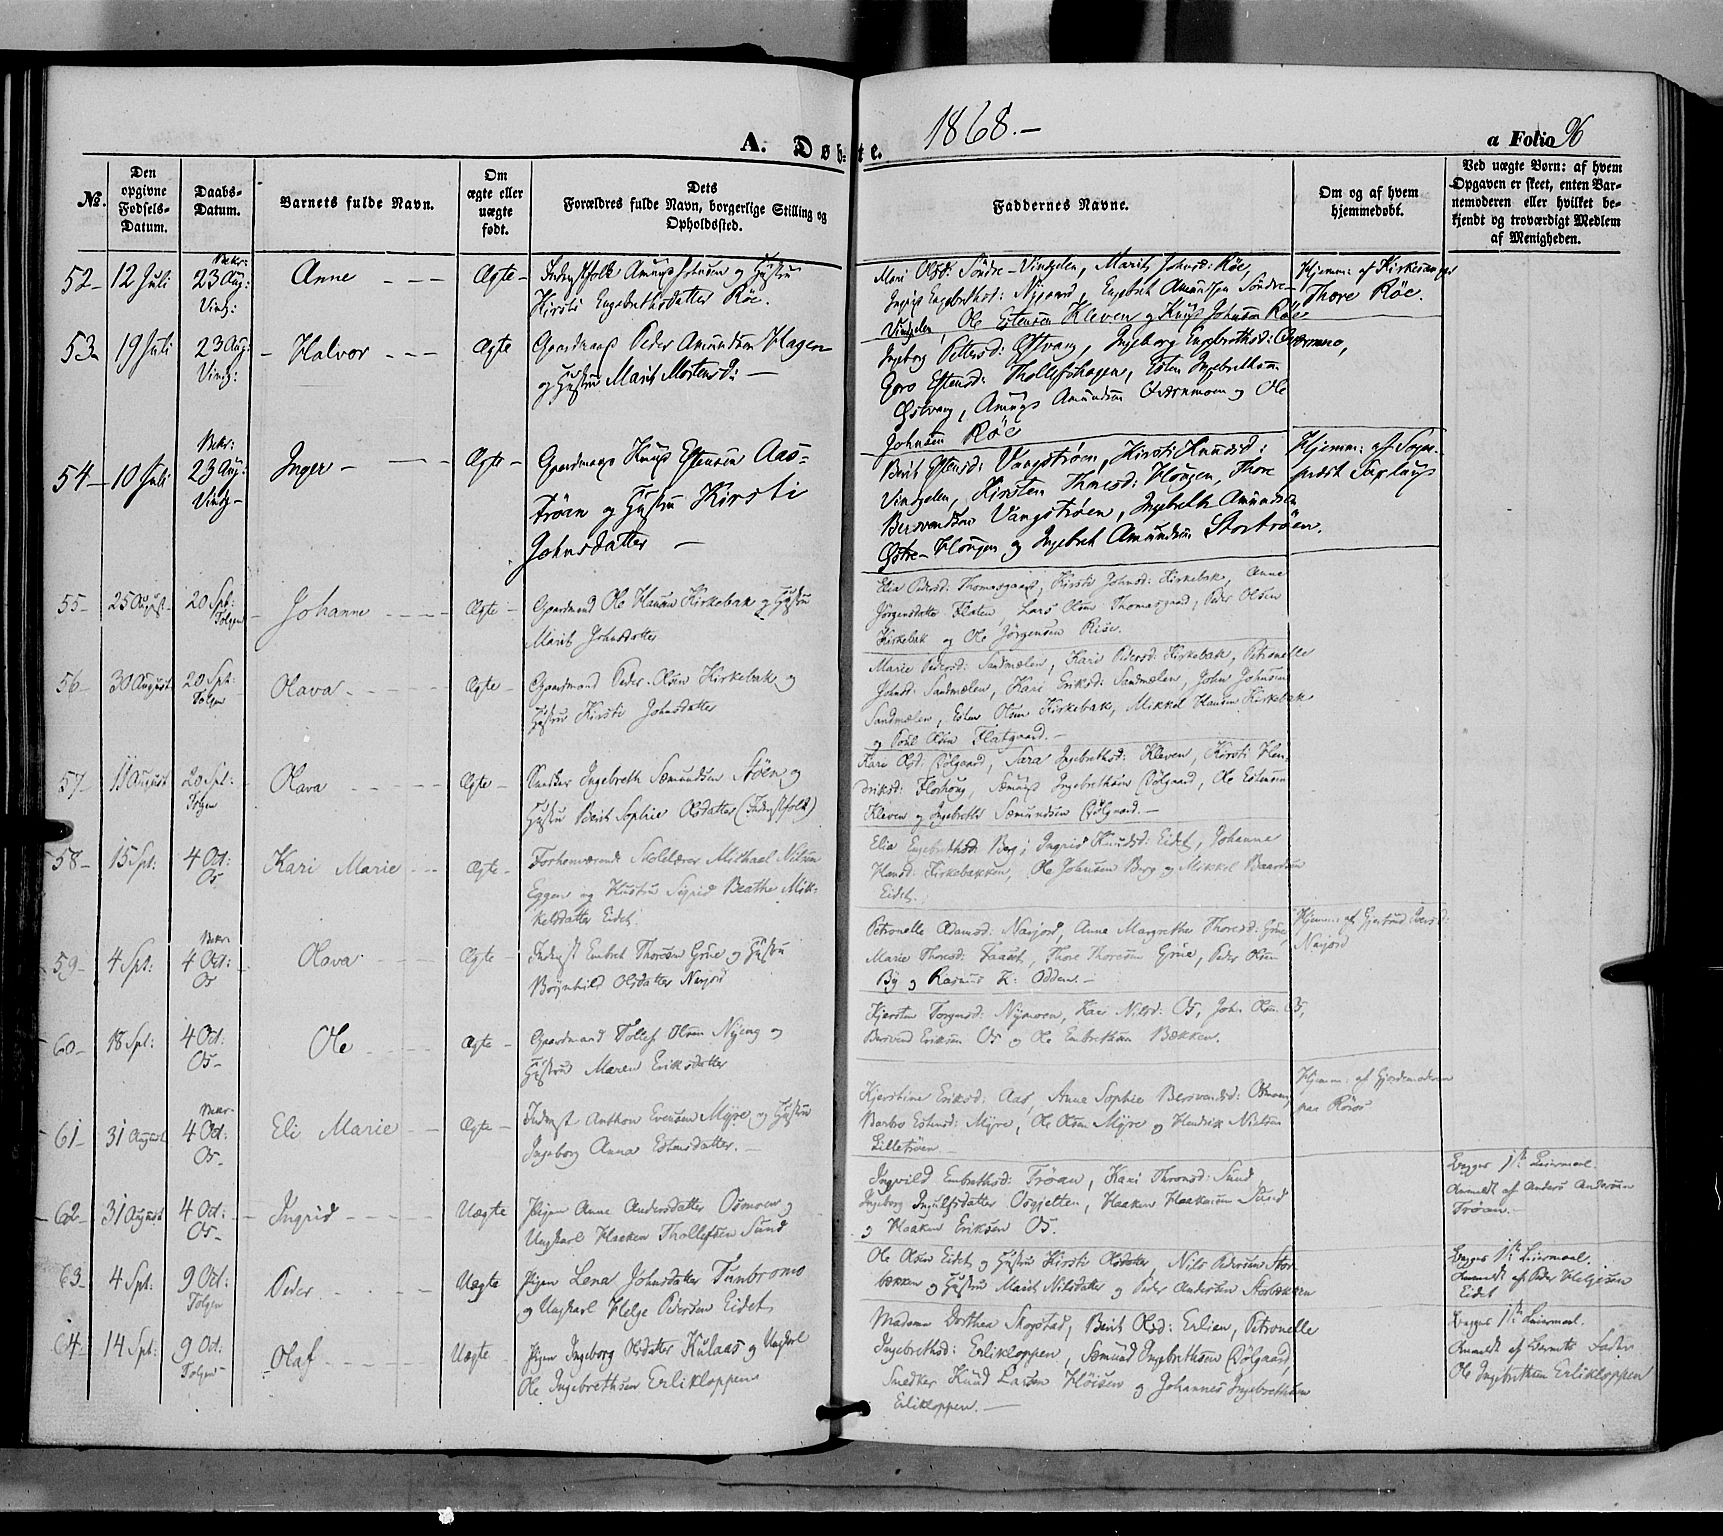 1868.-
A. Døbte.
a Folio 96
No.
Den opgivne Fødsels-Datum.
Daabs-Datum.
Barnets fulde Navn.
Om ægte eller uægte født.
Dets Forældres fulde Navn, borgerlige Stilling og Opholdssted.
Faddernes Navne.
Om og af hvem hjemmedøbt.
Ved uægte Børn: af hvem Opgaven er skeet, enten Barnemoderen eller hvilket bekjendt og troværdigt Medlem af Menigheden.
52- 12 Juli Bekr: 23 Aug: Ving: Anne Ægte-
Inderstfolk Amund Johnsen og Hustru
Kirsti Engebrethsdatter Røe.
Mari Olsd: Søndre-Vingelen, Marit Johnsd: Røe,
Engebrethsd: Nygaard, Engebret Amundsen Søndre-
Vingelen, Ole Estensen Kleven og Knud Johnsen Røe
Hjemm: af Kirkesanger
Thore Røe.
53- 19 Juli 23 Aug: Ving: Halvor Ægte
Gaardmand Peder Amundsen Hagen
og Hustru Marit Mortensd: -
Ingeborg Pettersd: Østvang, Ingeborg Engebrethsd: Qværnmo,
Goro Estensd: Thollefshagen, Esten Ingebrethsen
Østvang, Amund Amundsen Qværnmoen og Ole
Johnsen Røe
54- 10 Juli Bekr: 23 Aug: Ving- Inger- Ægte-
Gaardmand Knud Estensen Aas-
trøen og Hustru Kirsti
Johnsdatter -
Berit Estensd: Vangstrøen, Kirsti Knudsd:
Vingelen, Kirsten Thoresd: Hougen, Thore
Bersvendsen Vangstrøen, Ingebreth Amundsen
Østre-Hougen og Ingebret Amundsen Stortrøen.
Hjemm: af Sogne-
præst
55- 25 August- 20 Spt: Tolgen Johanne Ægte-
Gaardmand Ole Hansen Kirkebak og Hustru
Marit Johnsdatter
Elia Pedersd: Thomasgaard, Kirsti Johnsd: Kirkebak, Anne
Jørgensdatter Flaten, Lars Olsen Thomasgaard, Peder Olsen
Kirkebak og Ole Jørgensen Riise.
56- 30 August 20 Spt: Tolgen Olava Ægte-
Gaardmand Peder Olsen Kirkebak og
Hustru Kirsti Johnsdatter
Marie Pedersd: Sandmælen, Kari Pedersd: Kirkebak, Petronelle
Johnsd: Sandmælen, Kari Eriksd: Sandmælen, John Johnsen
Sandmælen, Esten Olsen Kirkebak, Mikkel Hansen Kirkebak
og Povl Olsen Flatgaard.-
57- 11 August 20 Spt: Tolgen Olava Ægte-
Snedker Ingebreth Sæmundsen Moen og
Hustru Berit Sophie Olsdatter (Inderstfolk)
Kari Olsd: Vølgaard, Sara Ingebrethsd: Kleven, Kirsti Hen-
driksd: Floshoug, Sæmund Ingebrethsen Vølgaard, Ole Estensen
Kleven og Ingebreth Sæmundsen Vølgaard.-
58- 15 Spt: 4 Oct: Os Kari Marie Ægte-
Forhenværende Skolelærer Michael Nilsen
Eggen og Hustru Sigrid Beathe Mik-
kelsdatter Eidet.
Elia Engebrethsd: Berg, Ingrid Knudsd: Eidet, Johanne
Hansd: Kirkebakken, Ole Johnsen Berg og Mikkel Baardsen
Eidet.
59- 4 Spt: Bekr 4 Oct: Os Olava Ægte-
Inderst Embret Thoresen Grüe og Hustru
Brynhild Olsdatter Narjord
Petronelle Adamsd: Narjord, Anne Margrethe Thoresd: Grüe,
Marie Thoresd: Faaset, Thore Thoresen Grüe, Peder Olsen
By og Rasmus Z: Odden.-
Hjemm: af Gjertrud Iversd:
Narjord
60- 18 Spt: 4 Oct: Os- Ole Ægte-
Gaardmand Tollef Olsen Nyeng og
Hustru Maren Eriksdatter
Kjersten Torgersd: Nymoen, Kari Nilsd: Os, John Olsen Os,
Bersvend Eriksen Os og Ole Embrethsen Bækken.
61- 31 August Bekr- 4 Oct: Os- Eli Marie Ægte-
Inderst Anthon Evensen Myre og Hustru
Ingeborg Anna Estensdatter.-
Kjerstine Eriksd: Aas, Anne Sophie Bersvendsd: Osmoen,
Barbo Estensd: Myre, Ole Olsen Myre og Hendrik Nielsen
Lilletrøen.-
Hjemm: af Gjordemoderen
paa Røros
62- 31 August 4 Oct: Os- Ingrid Uægte
Pigen Anne Andersdatter Osmoen og
Ungkarl Haaken Thollefsen Sund
Ingvild Embrethsd: Trøan, Kari Thronsd: Sund,
Ingeborg Ingulfsdatter Osgjelten, Haaken Haakensen Sund
og Haaken Eriksen Os.
Begges 1ste Leiermaal.
Anmeldt af Anders Andersen
Trøan.-
63- 4 Spt: 9 Oct: Tolgen Peder Uægte
Pigen Lena Johnsdatter Tunbromo
og Ungkarl Helge Pedersen Eidet
Ole Olsen Eidet og Hustru Kirsti Olsdatter, Nils Pedersen Stor-
bækken og Hustru Marit Nilsdatter og Peder Andersen Storbækken
Begges 1ste Leiermaal.
Anmeldt af Peder Helgesen
Eidet
64- 14 Spt: 9 Oct: Tolgen- Olaf Uægte-
Pigen Ingeborg Olsdatter Kulaas og Ungkarl
Ole Ingebrethsen Erlikloppen
Madame Dorthea Skogstad, Berit Olsd: Erlien, Petronelle
Ingebrethsd: Erlikloppen, Sæmund Ingebrethsen Vølgaard,
Snedker Knud Larsen Høisen og Johannes Ingebrethsen
Erlikloppen.-
Begges 1ste Leiermaal.
Anmeldt af Barnets Fader
Ole Ingebrethsen Erlikloppen